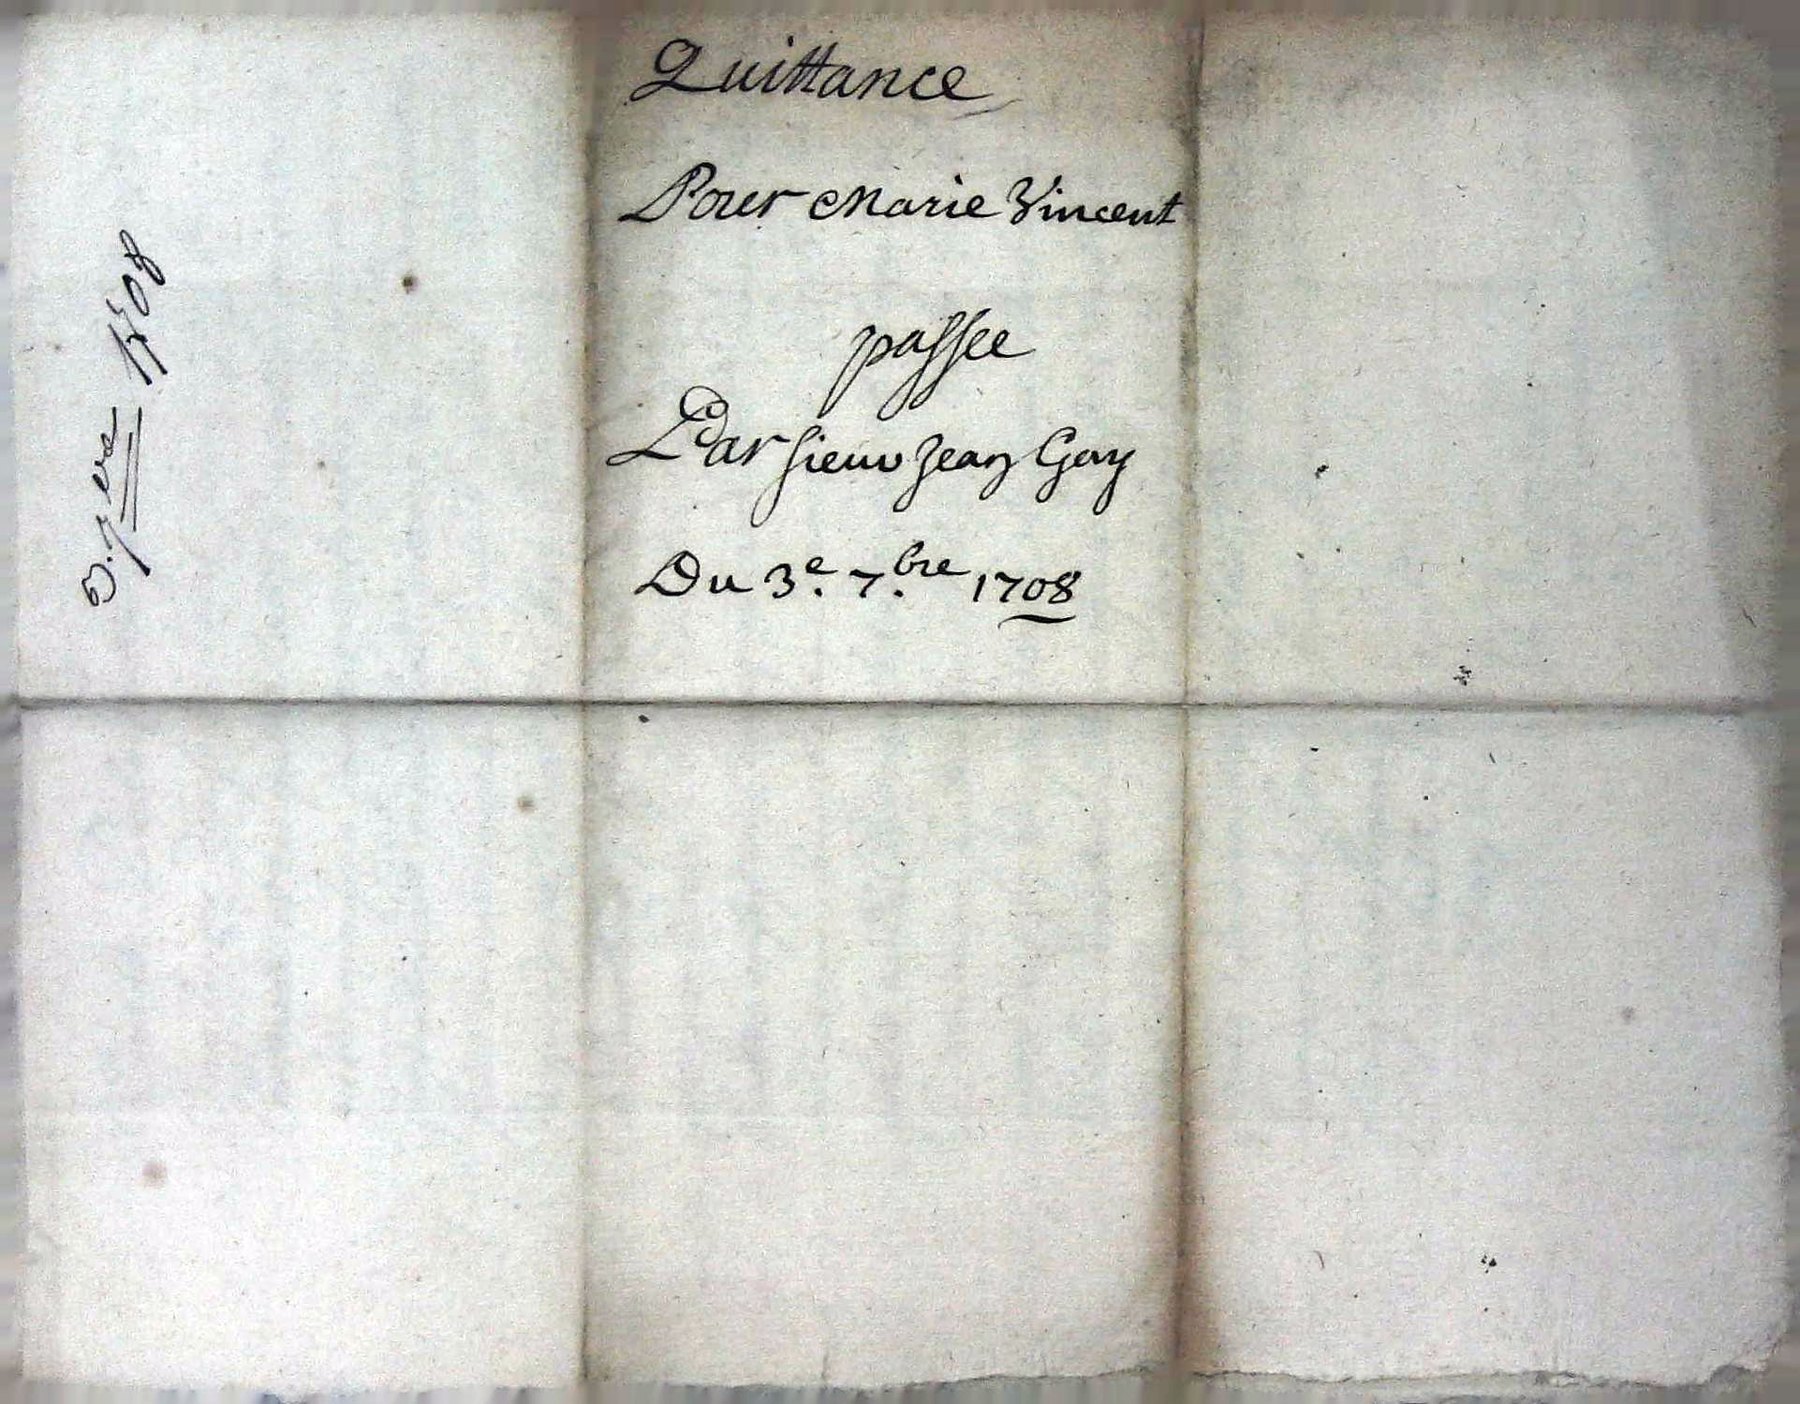 Quittance
Pour Marie Vincent
passee
Par sieur Jean Gay
Du 3e. 7.bre 1708
3. 7bre 1708